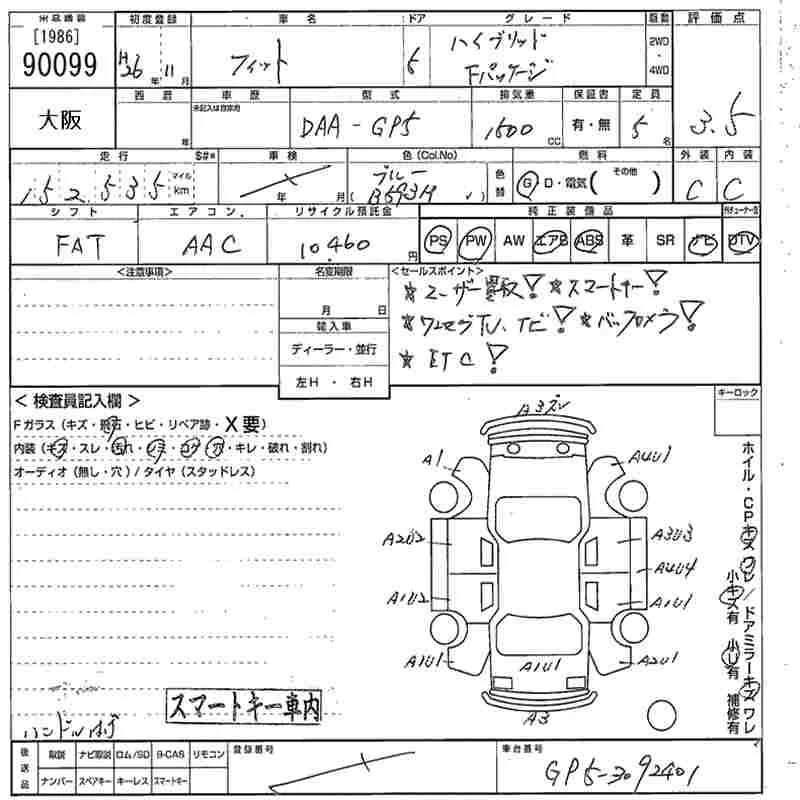 初度登録 車名 ドア グレード 駆動 評価点
[1986]
90099
H26年 11月 フィット 5 ハイブリッド
Fパッケージ
2WD
4WD
3.5
大阪
西暦 車歴 型式 排気量 保証書 定員
未記入は自家用
年 DAA-GP5 1500cc 有・無 5名
走行 S#* 車検 色(Col.No) 燃料 外装 内装
152,535 マイル km 年 月 ブルー 色替 G D・電気( その他 ) C C
(B593M)
シフト エアコン リサイクル預託金 純正装備品
FAT AAC 10,460円 PS PW AW エアB ABS 革 SR ナビ DTV
<注意事項> 名変期限 <セールスポイント>
月 日
輸入車
ディーラー・並行
左H・右H
☆ユーザー買取! ☆スマートキー!
☆ワンセグTV、ナビ! ☆バックカメラ!
☆ETC!
キーロック
<検査員記入欄>
Fガラス(キズ・飛石・ヒビ・リペア跡・X要)
内装(キズ・スレ・汚れ・シミ・コゲ・穴・キレ・破れ・割れ)
オーディオ(無し・穴)/タイヤ(スタッドレス)
A3ズレ
A1 A4U1
A2U2 A3U3
A4U4
A1U2 A1U1
A1U1 A1U1 A2U1
A3
ホイル・CPキズ ワレ/ドアミラーキズ ワレ
小キズ有 小U有 補修有
スマートキー車内
ハンドル
後送品 取説 ナビ取説 ロム/SD B-CAS リモコン 登録番号 車台番号
ナンバー スペアキー キーレス スマートキー GP5-3092401